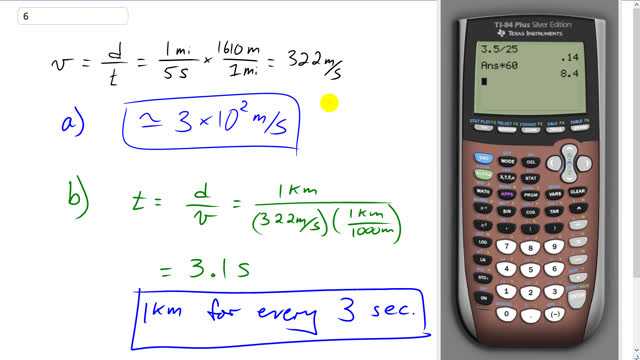 6
v = d/t = 1mi/5s × 1610m/1mi = 322 m/s
a) ≃ 3 × 10² m/s
b) t = d/v = 1Km/(322m/s)(1Km/1000m)
= 3.1 s
1Km for every 3 sec.
TI-84 Plus Silver Edition
TEXAS INSTRUMENTS
3.5/25
.14
Ans*60
8.4
STAT PLOT F1 TBLSET F2 FORMAT F3 CALC F4 TABLE F5
Y= WINDOW ZOOM TRACE GRAPH
2ND MODE DEL
ALPHA X,T,θ,n STAT
MATH APPS PRGM VARS CLEAR
x⁻¹ SIN COS TAN ^
x² , ( ) ÷
LOG 7 8 9 ×
LN 4 5 6 −
STO→ 1 2 3 +
ON 0 . (−)